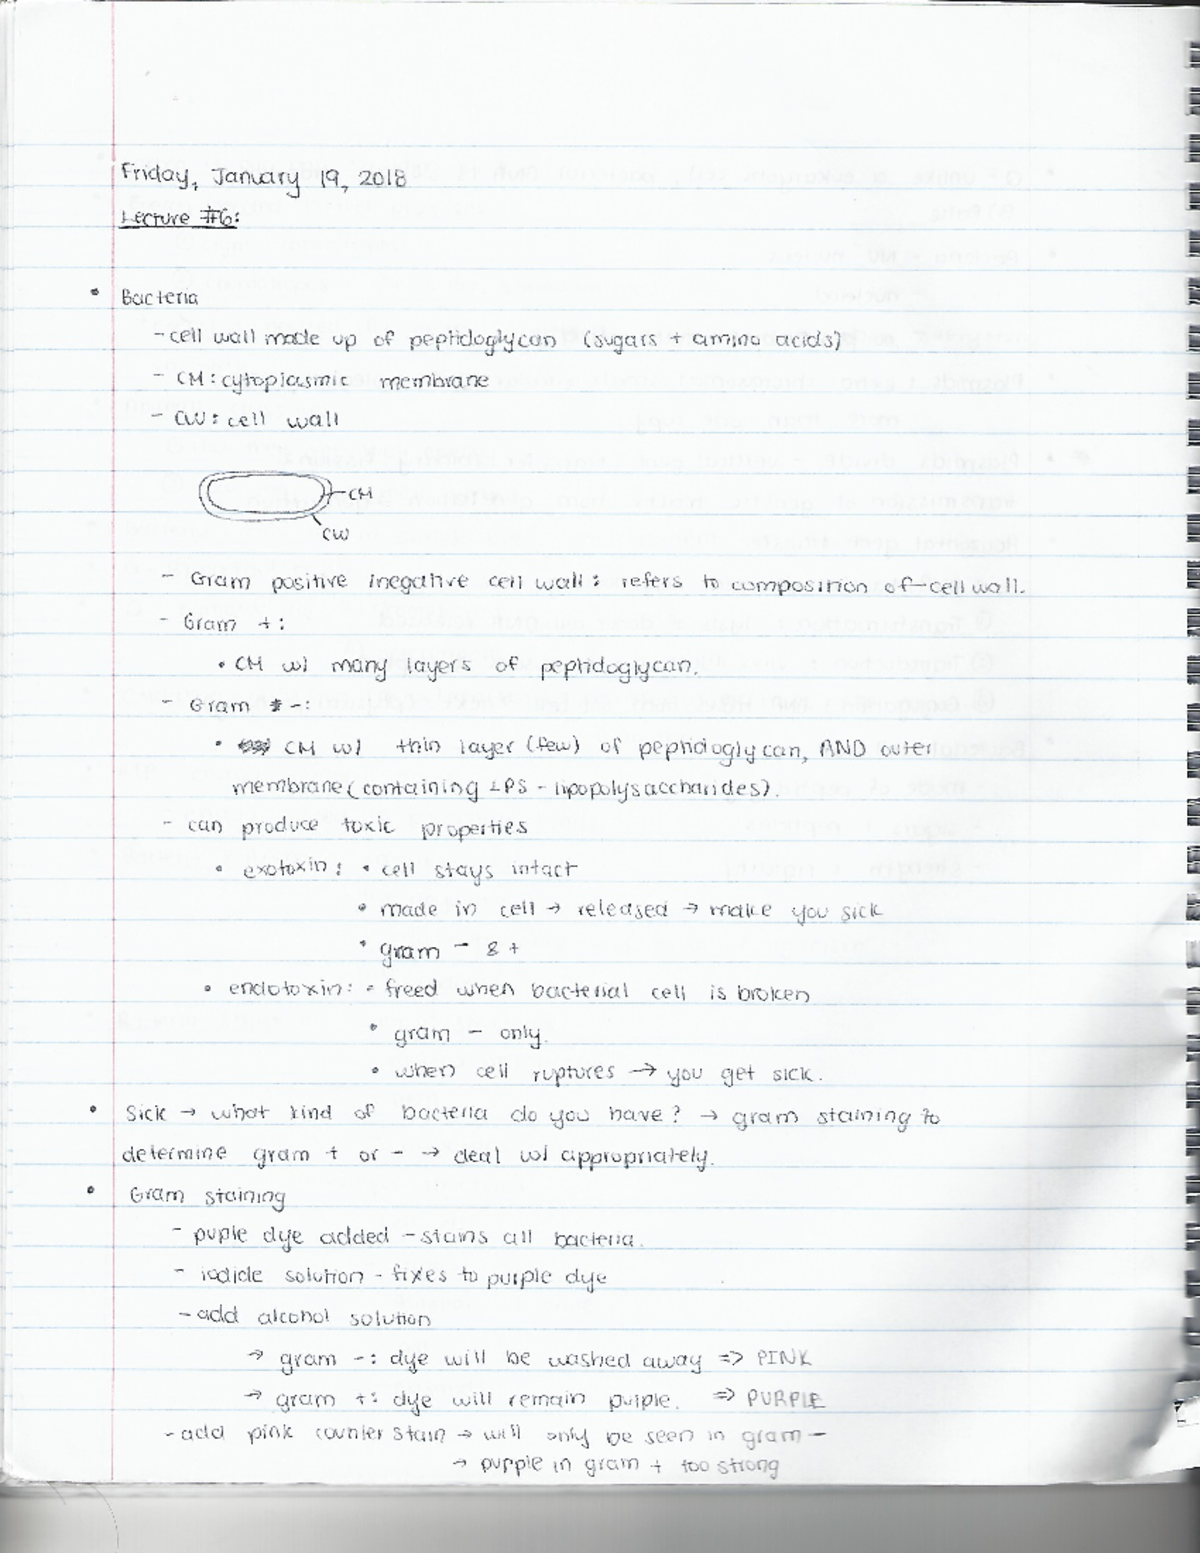 Friday, January 19, 2018
Lecture #6:
• Bacteria
- cell wall made up of peptidoglycan (sugars + amino acids)
- CM: cytoplasmic membrane
- CW: cell wall
CM
CW
- Gram positive /negative cell wall: refers to composition of cell wall.
- Gram +:
• CM w/ many layers of peptidoglycan.
- Gram -:
• CM w/ thin layer (few) of peptidoglycan, AND outer
membrane (containing LPS - lipopolysaccharides).
- can produce toxic properties
• exotoxin: • cell stays intact
• made in cell → released → make you sick
• gram - & +
• endotoxin: • freed when bacterial cell is broken
• gram - only.
• when cell ruptures → you get sick.
• Sick → what kind of bacteria do you have? → gram staining to
determine gram + or - → deal w/ appropriately.
• Gram staining
- puple dye added - stains all bacteria.
- iodide solution - fixes to purple dye
- add alcohol solution
→ gram -: dye will be washed away => PINK
→ gram +: dye will remain purple. => PURPLE
- add pink counter stain → will only be seen in gram -
→ purple in gram + too strong